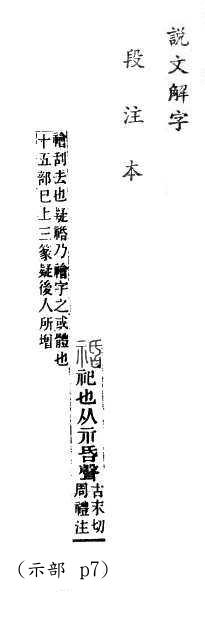 說文解字
段注本
祀也从示昏聲古末切
周禮注
禬刮去也疑𥚽乃禬字之或體也
十五部巳上三篆疑後人所增
(示部 p7)